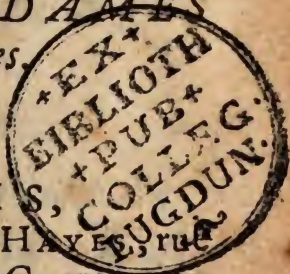 DAMES
es,
*EX*
BIBLIOTH
*PUB*
COLLEG.
LUGDUN.
S,
HAYES, rue